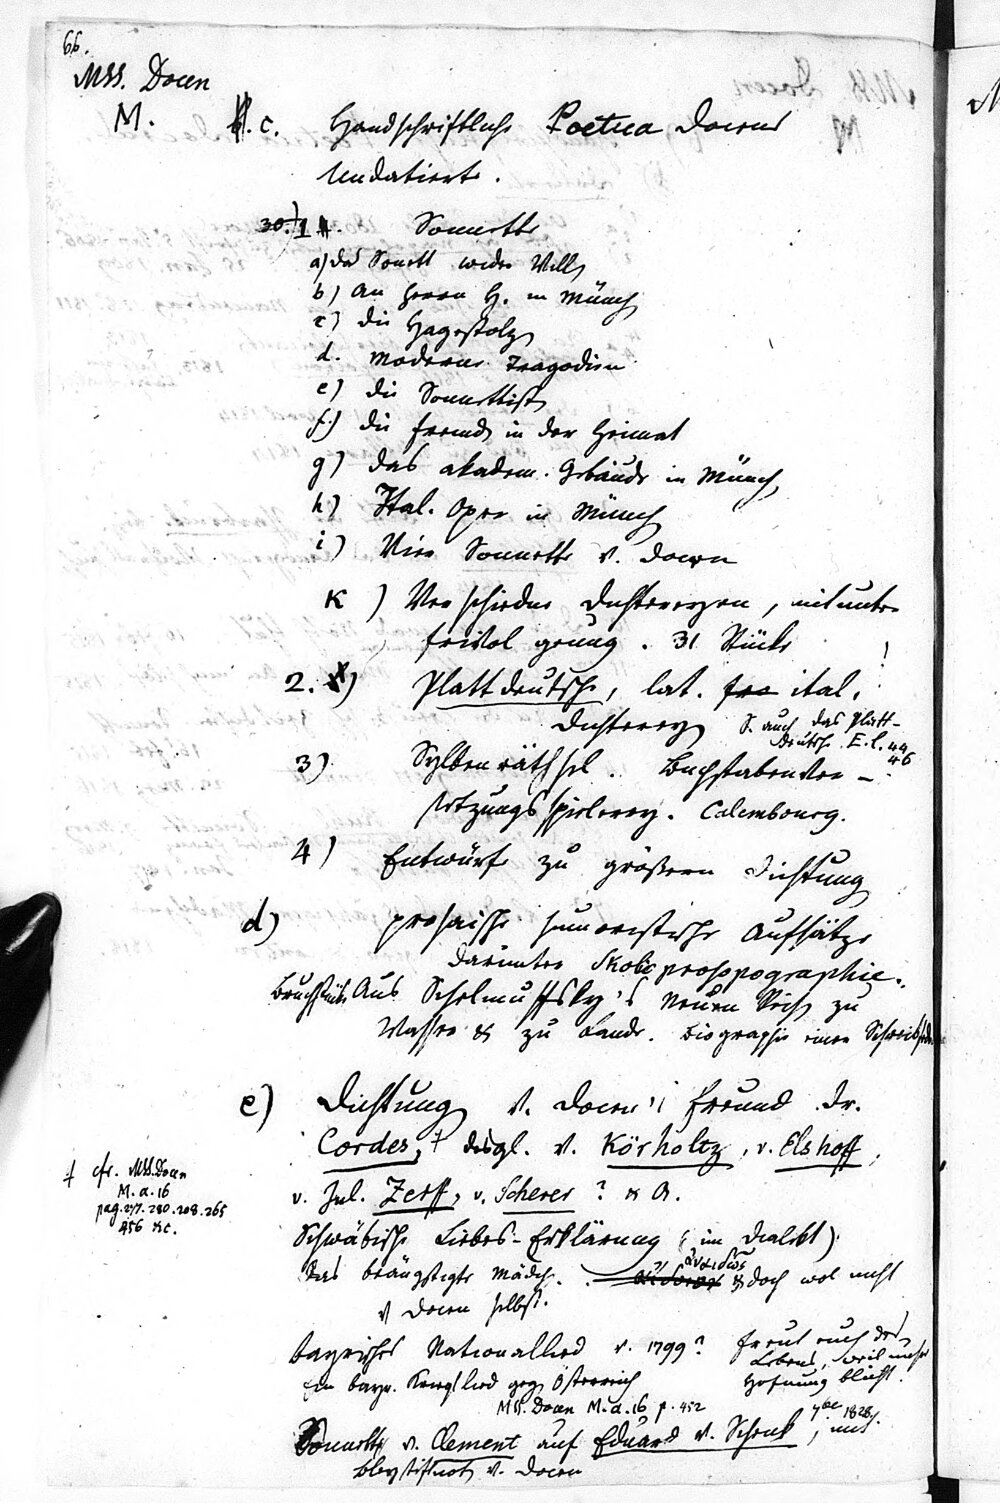 66.
MSS. Docen
M. c. Handschriftliche Poetica Docens
Undatierte.
30. 1 Sonette
a) das Sonett wider Willen
b) An Herrn H. in München
c) die Hagestolzen
d. moderne Tragödien
e) die Sonettisten
f.) die Fremde in der Heimat
g) das akadem. Gebäude in München
h) Ital. Oper in München
i) Vier Sonette v. Docen
K) Verschiedne Dichtereyen, mitunter
frivol genug. 31 Stücke
2. Plattdeutsche, lat. ital.
Dichtereyen S. auch das Platt-
deutsche E. l. 44
46
3) Sylbenräthsel. Buchstabenver-
setzungsspielerey. Calembourg.
4) Entwürfe zu größern Dichtungen
d) prosaische humoristische Aufsätze
darunter Skolioprosopographie.
Bruchstücke Aus Schelmuffsky's neuen Reisen zu
Wasser & zu Lande. Biographie einer Schreibfeder
e) Dichtungen v. Docen's Freund Dr.
Cordes, † desgl. v. Körholtz, v. Elshoff,
v. Jul. Zerff, v. Scherer? & A.
† cfr. MSS. Docen
M. a. 16
pag. 277. 280. 208. 265
456 &c.
Schwäbische Liebes-Erklärung (im Dialekt)
Das beängstigte Mädch. doch wol nicht
v Docen selbst.
bayrisches Nationallied v. 1799? Freut euch des
Lebens, weil
Hofnung blüht.
Ein bayr. Kriegslied geg. Österreich
MSS. Docen M. a. 16 p. 452
Sonette v. Clement auf Eduard v. Schenk, 7ber 1828, mit
Bleystiftnoten v. Docen